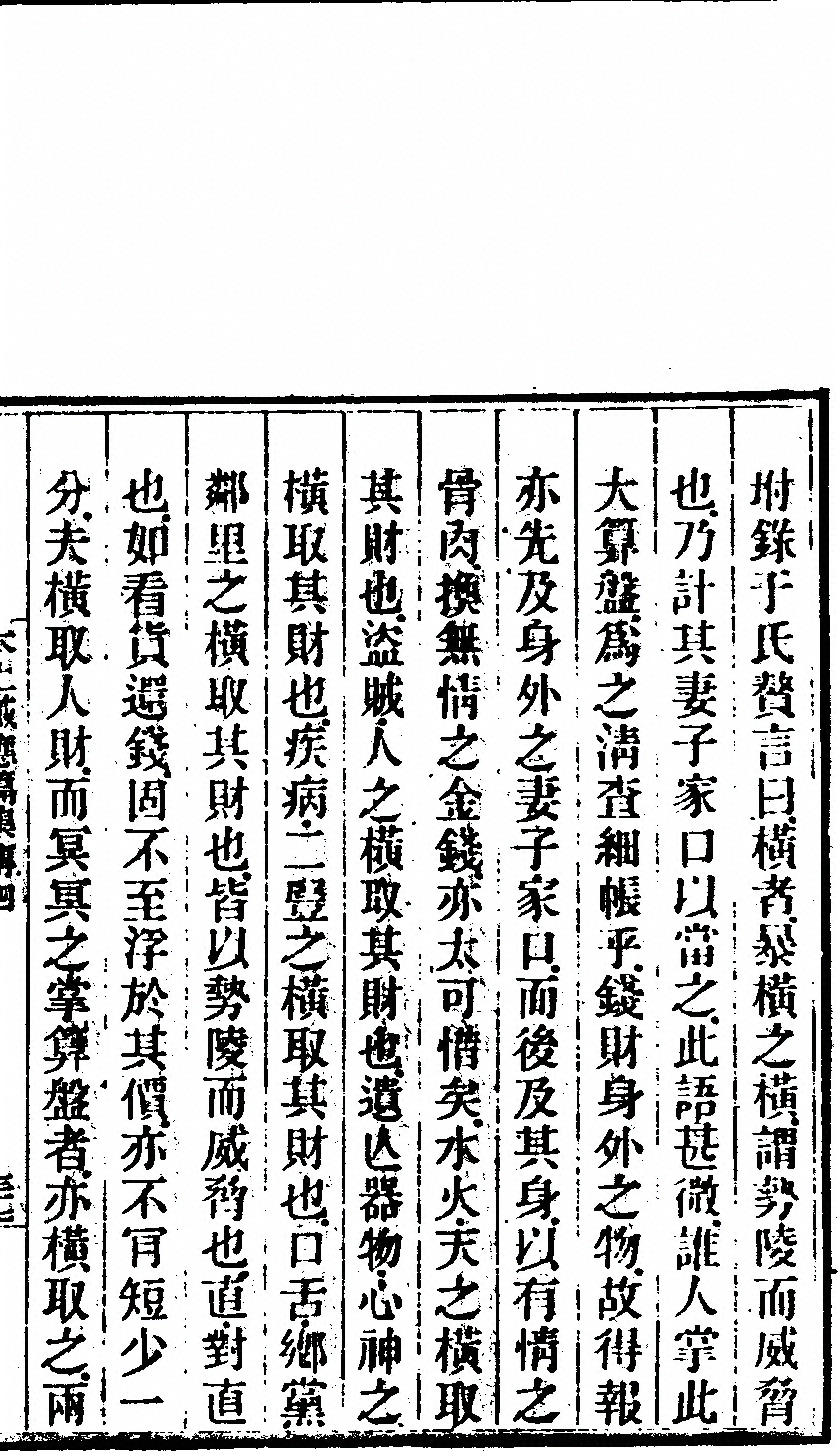 坿錄于氏贅言曰橫者暴橫之橫謂勢陵而威脅
也乃計其妻子家口以當之此語甚微誰人掌此
大算盤爲之淸查細帳乎錢財身外之物故得報
亦先及身外之妻子家口而後及其身以有情之
骨肉換無情之金錢亦太可惜矣水火天之橫取
其財也盜賊人之橫取其財也遺亾器物心神之
橫取其財也疾病二豎之橫取其財也口舌鄉黨
鄰里之橫取其財也皆以勢陵而威脅也直對直
也如看貨還錢固不至浮於其價亦不肎短少一
分夫橫取人財而冥冥之掌算盤者亦橫取之兩